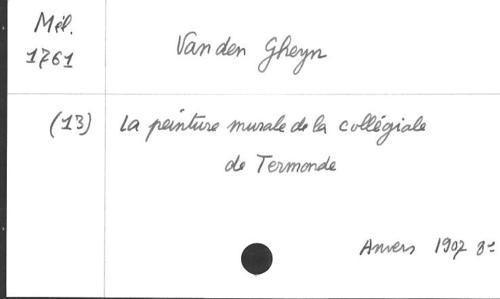 Mél.
1761
Van den Gheyn
(13) La peinture murale de la collégiale
de Termonde
Anvers 1907 8°